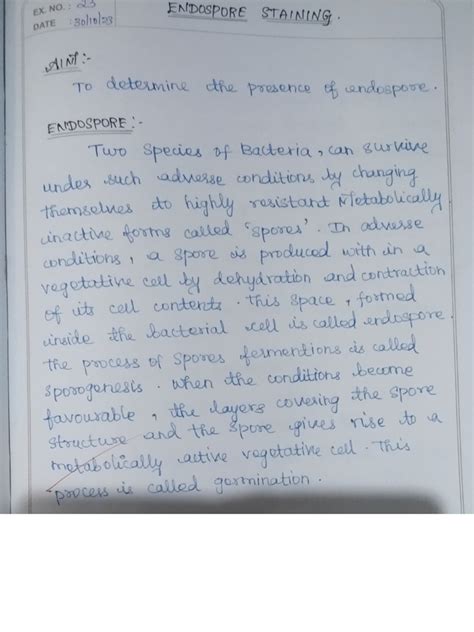 EX. NO. : 23
DATE : 30/10/23
ENDOSPORE STAINING.
AIM :-
To determine the presence of endospore.
ENDOSPORE :-
Two Species of Bacteria, can survive
under such adverse conditions by changing
themselves to highly resistant Metabolically
inactive forms called 'spores'. In adverse
conditions, a spore is produced with in a
vegetative cell by dehydration and contraction
of its cell contents. This space, formed
inside the bacterial cell is called endospore.
the process of spores fermentions is called
sporogenesis. When the conditions become
favourable, the layers covering the spore
structure and the spore gives rise to a
metabolically active vegetative cell. This
process is called germination.